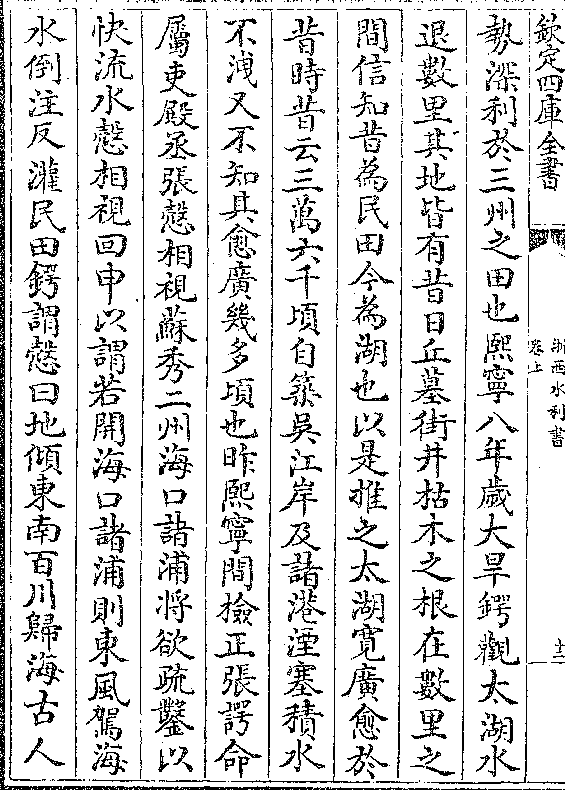 欽定四庫全書
浙西水利書
卷上
十二
勢深利於三州之田也熙寧八年歲大旱鍔觀太湖水
退數里其地皆有昔日丘墓街井枯木之根在數里之
間信知昔為民田今為湖也以是推之太湖寛廣愈於
昔時昔云三萬六千頃自築吳江岸及諸港湮塞積水
不洩又不知其愈廣幾多頃也昨熙寧間檢正張諤命
屬吏殿丞張慤相視蘇秀二州海口諸浦將欲疏鑿以
快流水慤相視回申以謂若開海口諸浦則東風駕海
水倒注反灌民田鍔謂慤曰地傾東南百川歸海古人